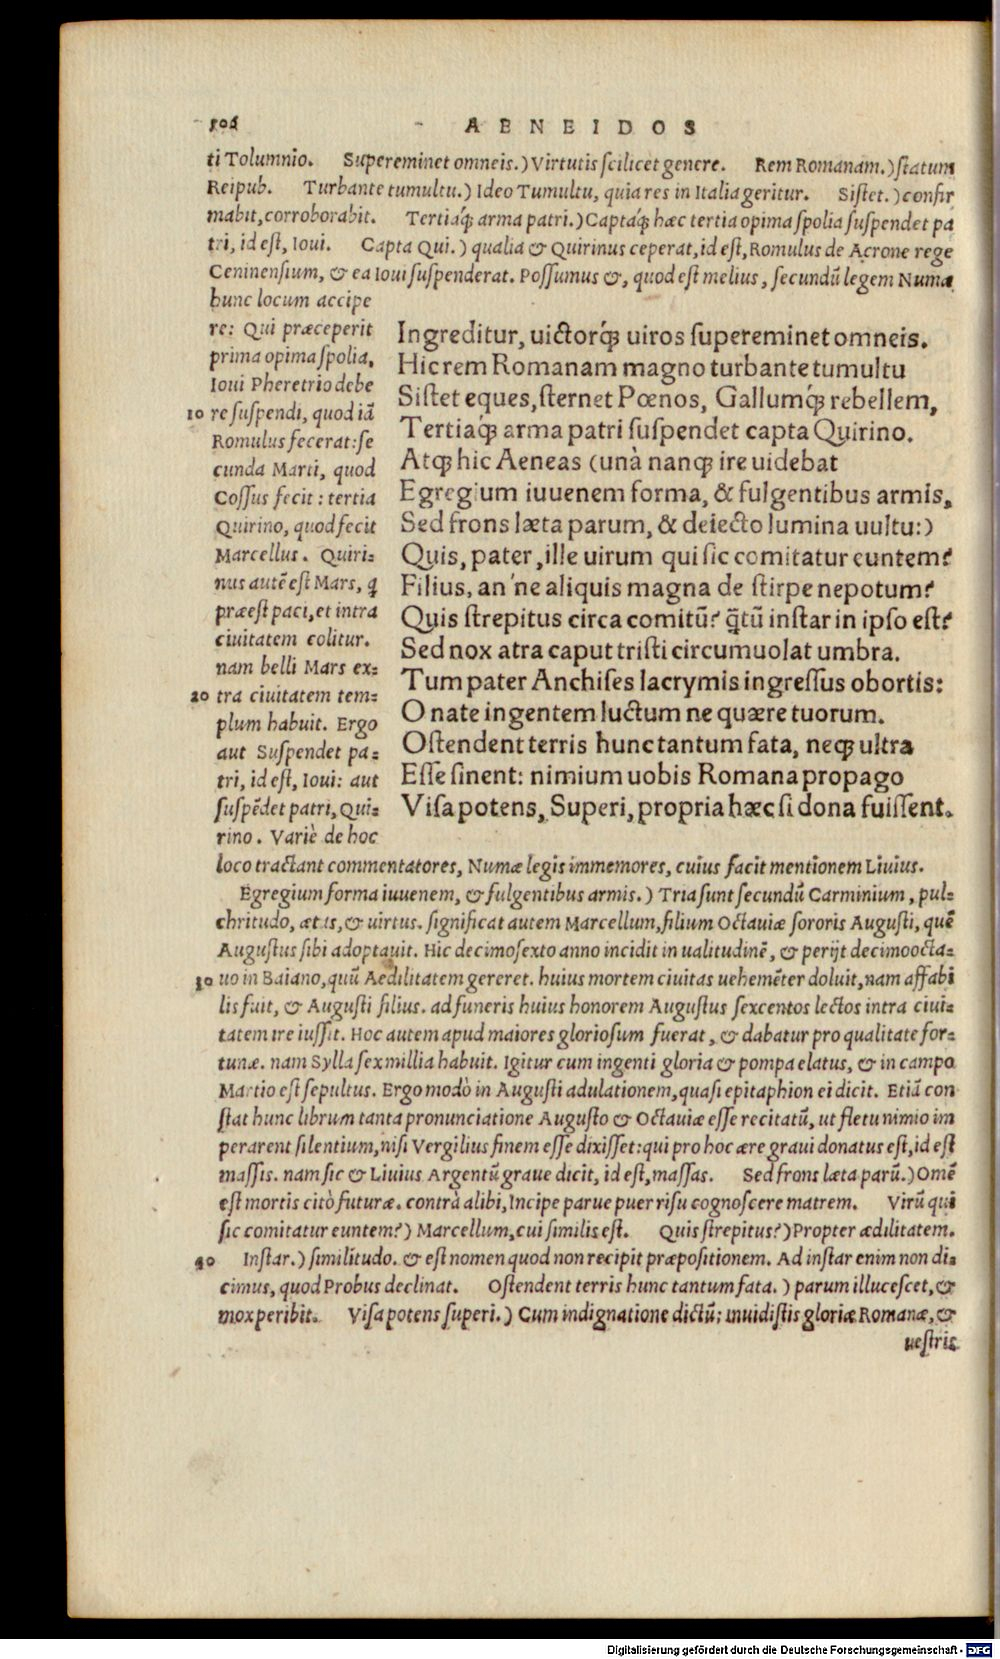 506
AENEIDOS
ti Tolumnio. Supereminet omneis.) Virtutis scilicet genere. Rem Romanam.) statum
Reipub. Turbante tumultu.) Ideo Tumultu, quia res in Italia geritur. Sistet.) confir
mabit, corroborabit. Tertiaq́; arma patri.) Captaq́; hæc tertia opima spolia suspendet pa
tri, id est, Ioui. Capta Qui.) qualia & Quirinus ceperat, id est, Romulus de Acrone rege
Ceninensium, & ea Ioui suspenderat. Possumus &, quod est melius, secundū legem Numæ
hunc locum accipe
re: Qui præceperit
prima opima spolia,
Ioui Pheretrio debe
10 re suspendi, quod iā
Romulus fecerat: se
cunda Marti, quod
Cossus fecit: tertia
Quirino, quod fecit
Marcellus. Quiri-
nus autē est Mars, q̃
præest paci, et intra
ciuitatem colitur.
nam belli Mars ex-
20 tra ciuitatem tem-
plum habuit. Ergo
aut Suspendet pa-
tri, id est, Ioui: aut
suspēdet patri, Qui-
rino. Variè de hoc
Ingreditur, uictorq́; uiros supereminet omneis.
Hic rem Romanam magno turbante tumultu
Sistet eques, sternet Pœnos, Gallumq́; rebellem,
Tertiaq́; arma patri suspendet capta Quirino.
Atq; hic Aeneas (unà nanq; ire uidebat
Egregium iuuenem forma, & fulgentibus armis,
Sed frons læta parum, & deiecto lumina uultu:)
Quis, pater, ille uirum qui sic comitatur euntem?
Filius, an'ne aliquis magna de stirpe nepotum?
Quis strepitus circa comitū? q̃tū instar in ipso est?
Sed nox atra caput tristi circumuolat umbra.
Tum pater Anchises lacrymis ingressus obortis:
O nate ingentem luctum ne quære tuorum.
Ostendent terris hunc tantum fata, neq; ultra
Esse sinent: nimium uobis Romana propago
Visa potens, Superi, propria hæc si dona fuissent.
loco tractant commentatores, Numæ legis immemores, cuius facit mentionem Liuius.
Egregium forma iuuenem, & fulgentibus armis.) Tria sunt secundū Carminium, pul-
chritudo, ætas, & uirtus. significat autem Marcellum, filium Octauiæ sororis Augusti, quē
Augustus sibi adoptauit. Hic decimosexto anno incidit in ualitudinē, & perijt decimoocta-
30 uo in Baiano, quū Aedilitatem gereret. huius mortem ciuitas uehemēter doluit, nam affabi
lis fuit, & Augusti filius. ad funeris huius honorem Augustus sexcentos lectos intra ciui-
tatem ire iussit. Hoc autem apud maiores gloriosum fuerat, & dabatur pro qualitate for-
tunæ. nam Sylla sex millia habuit. Igitur cum ingenti gloria & pompa elatus, & in campo
Martio est sepultus. Ergo modò in Augusti adulationem, quasi epitaphion ei dicit. Etiā con
stat hunc librum tanta pronunciatione Augusto & Octauiæ esse recitatū, ut fletu nimio im
perarent silentium, nisi Vergilius finem esse dixisset: qui pro hoc ære graui donatus est, id est
massis. nam sic & Liuius Argentū graue dicit, id est, massas. Sed frons læta parū.) Omē
est mortis citò futuræ. contrà alibi, Incipe parue puer risu cognoscere matrem. Virū qui
sic comitatur euntem?) Marcellum, cui similis est. Quis strepitus?) Propter ædilitatem.
40 Instar.) similitudo. & est nomen quod non recipit præpositionem. Ad instar enim non di-
cimus, quod Probus declinat. Ostendent terris hunc tantum fata.) parum illucescet, &
mox peribit. Visa potens superi.) Cum indignatione dictū: inuidistis gloriæ Romanæ, &
uestris
Digitalisierung gefördert durch die Deutsche Forschungsgemeinschaft - DFG